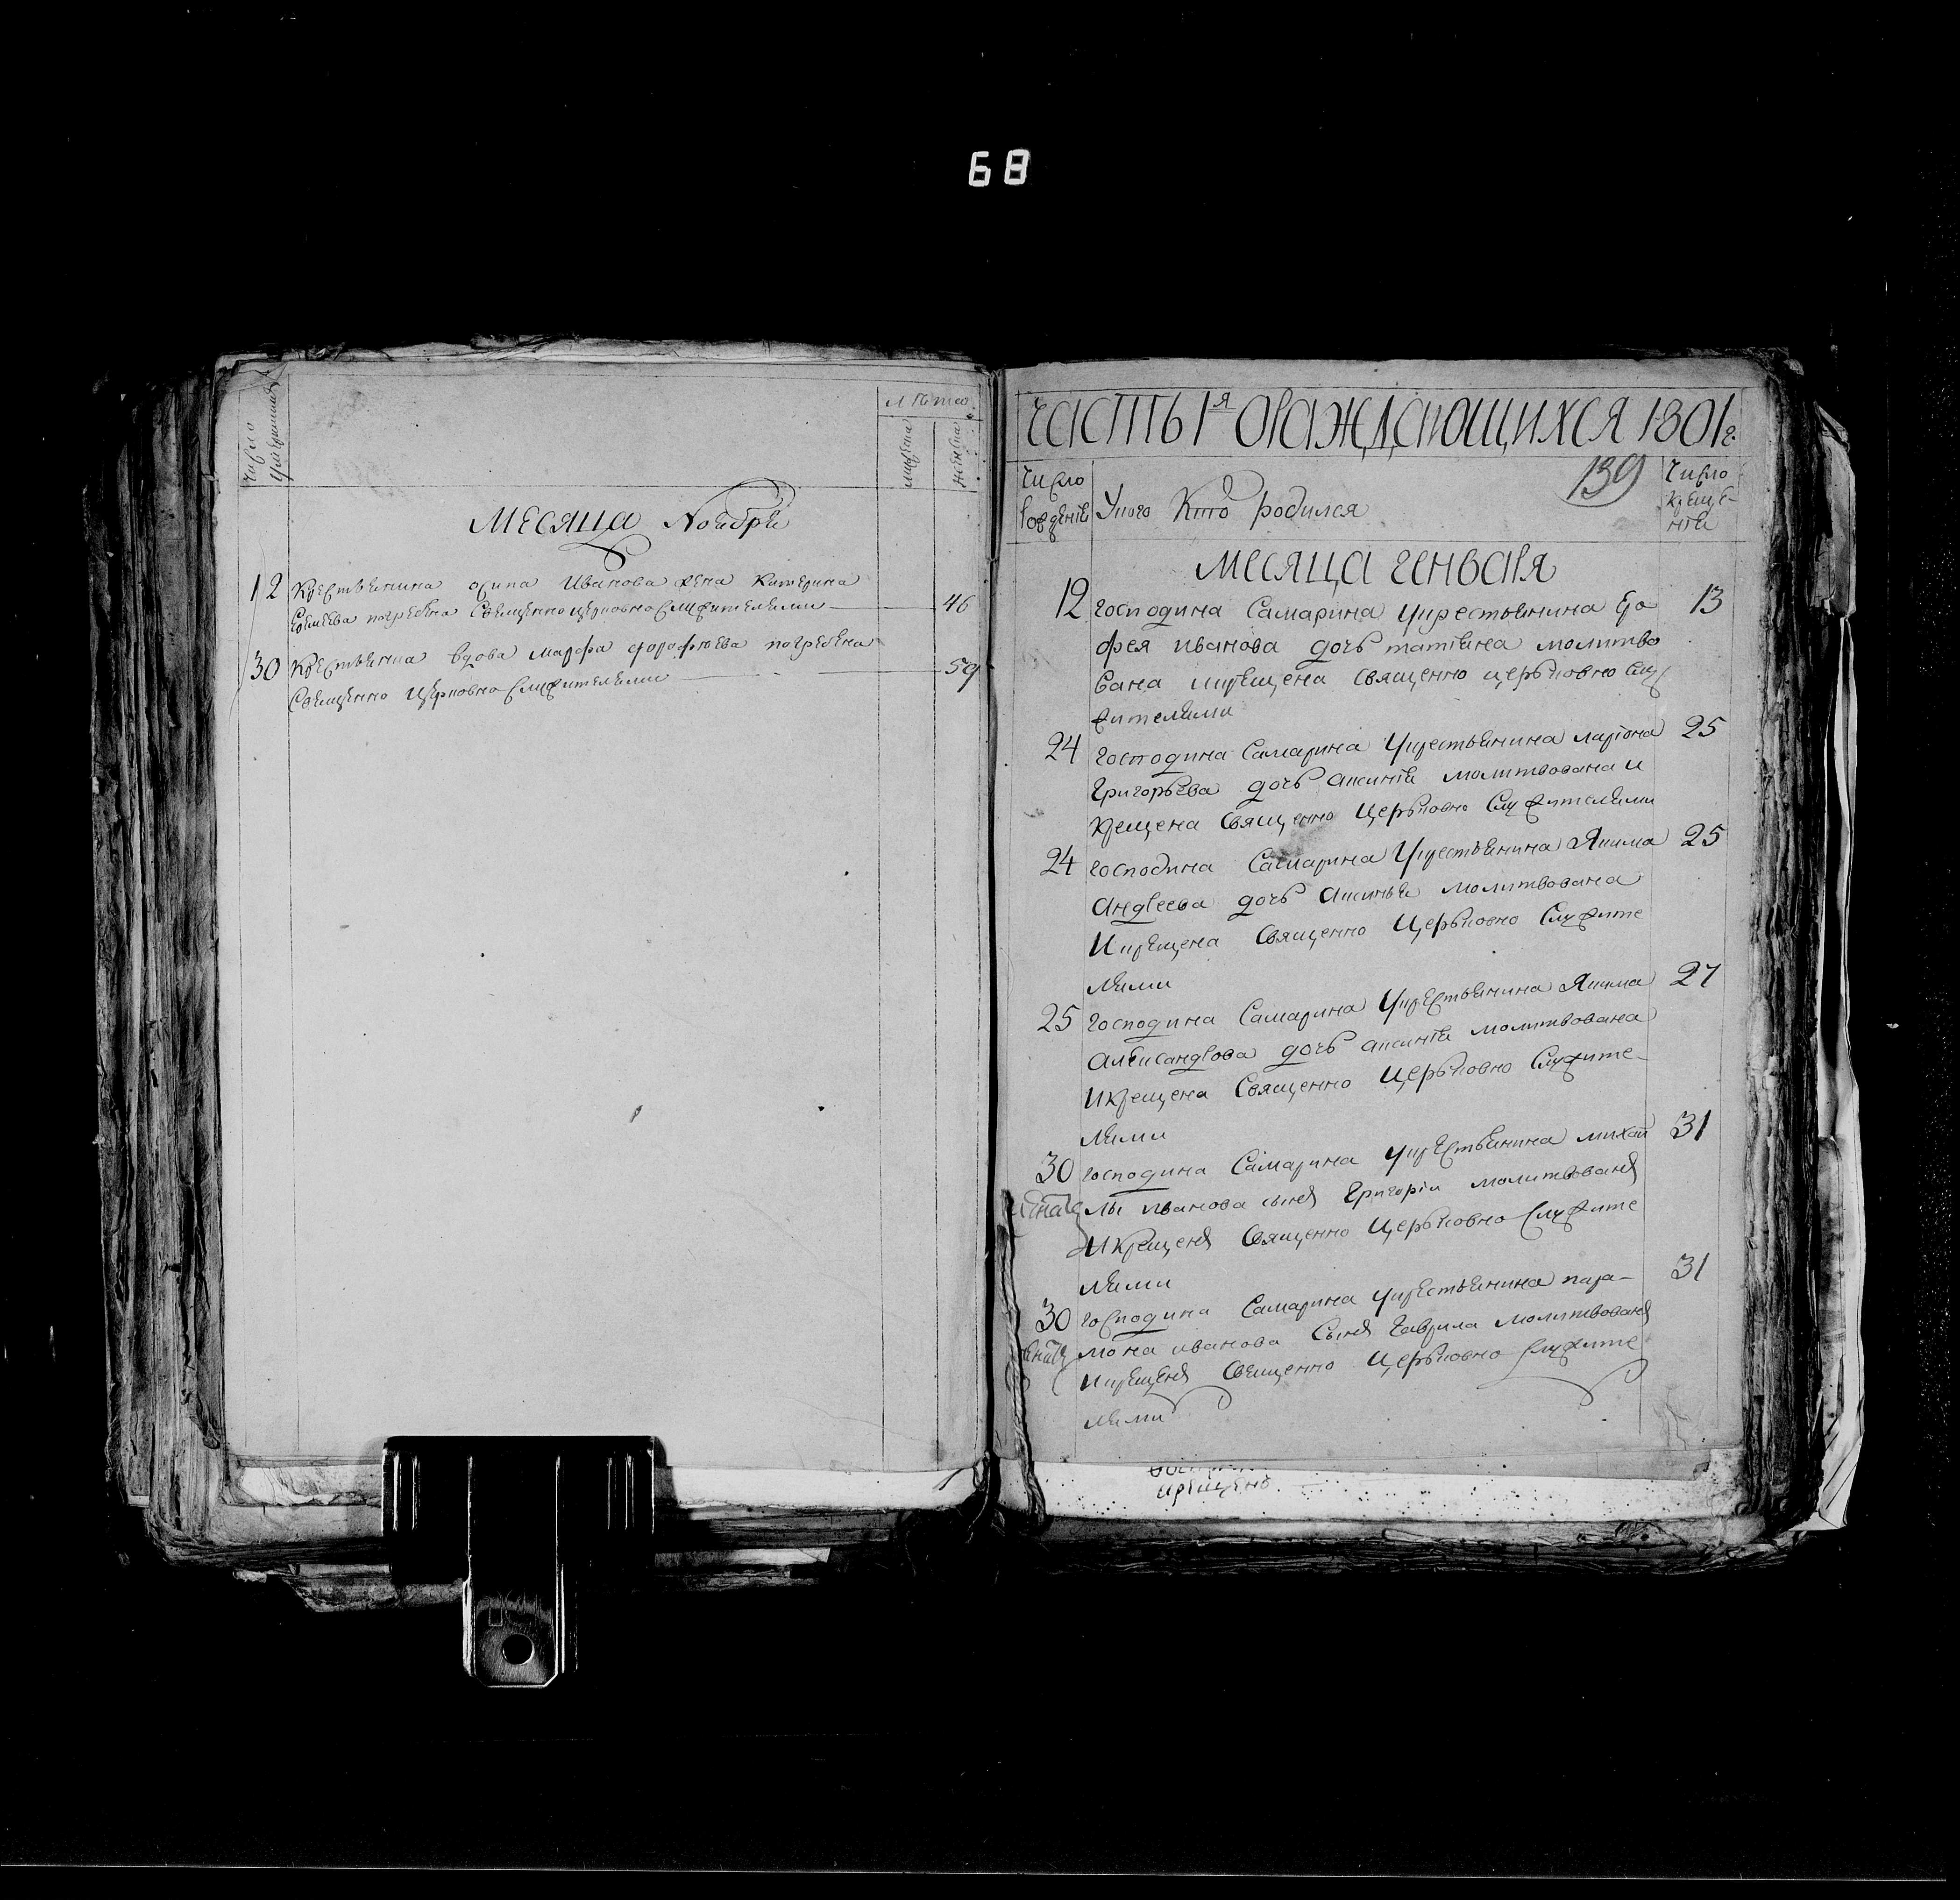 68
число умершихъ
лѣта
мужеска
женска
Месяца Ноября
12 Крестьянина осипа Иванова жена Катерина
Еремѣева погребѣна Священно церковно служителями 46
30 Крестьянина вдова марфа дорофѣева погребѣна
Священно церковно служителями 59
Часть 1я О раждающихся 1801 г.
139
Число рождѣнїя
У кого кто родился
Число крещенїя
месяца генваря
12 господина Самарина у крестьянина Еро 13
фея иванова дочь татїяна молитво
вана и крещена священно церьковно слу
жителями
24 господина Самарина у крестьянина ларїона 25
Григорьева дочь аксинїя молитвована и
крещена священно церьковно служителями
24 господина Самарина у крестьянина Якима 25
Андреева дочь Аксинья молитвована
и крещена священно церьковно служите
лями
25 господина Самарина у крестьянина Якима 27
алѣксандрова дочь аксинїя молитвована
и крещена Священно церьковно служите-
лями
30 господина Самарина у крестьянина михаи 31
лы иванова сынъ Григорїи молитвованъ
и крещенъ священно церьковно служите
лями
30 господина Самарина у крестьянина пара- 31
мона иванова Сынъ Гаврила молитвованъ
и крещенъ Священно церьковно служите
лями
крещено